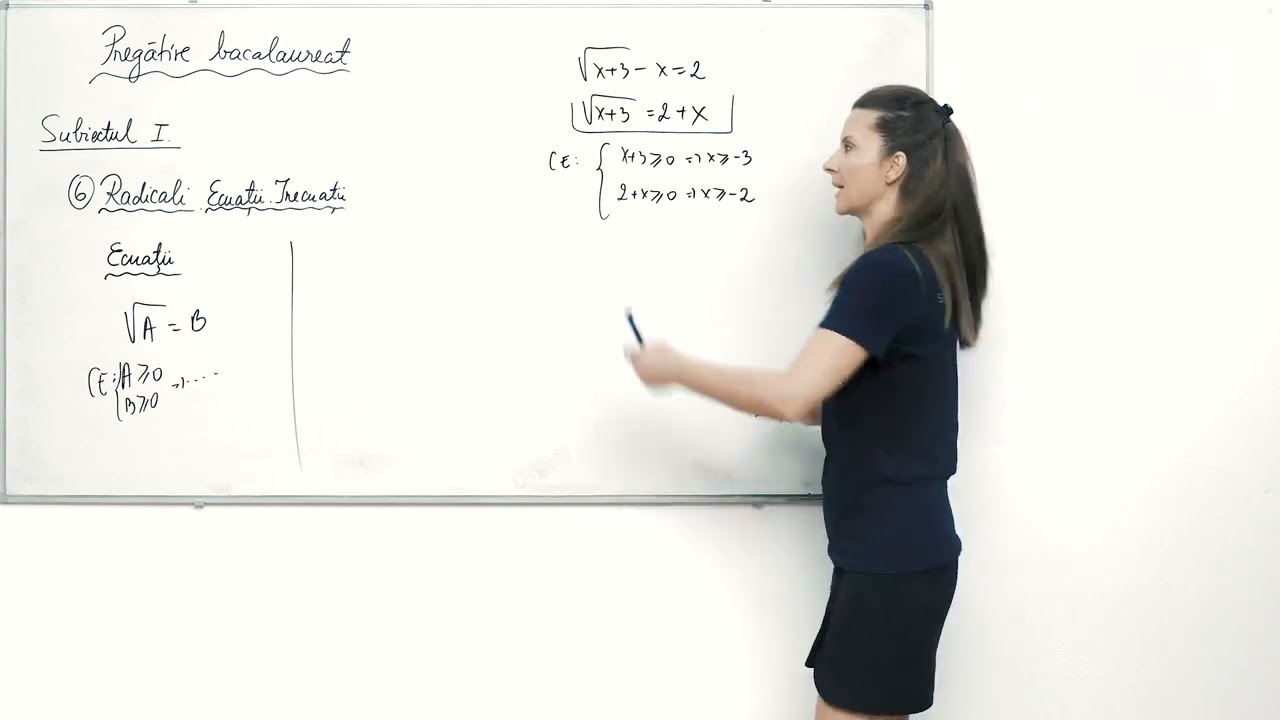 Pregătire bacalaureat
Subiectul I.
⑥ Radicali. Ecuații. Inecuații
Ecuații
√A = B
CE: { A ≥ 0
B ≥ 0 ⇒ ....
√x+3 - x = 2
√x+3 = 2 + x
CE: { x+3 ≥ 0 ⇒ x ≥ -3
2+x ≥ 0 ⇒ x ≥ -2